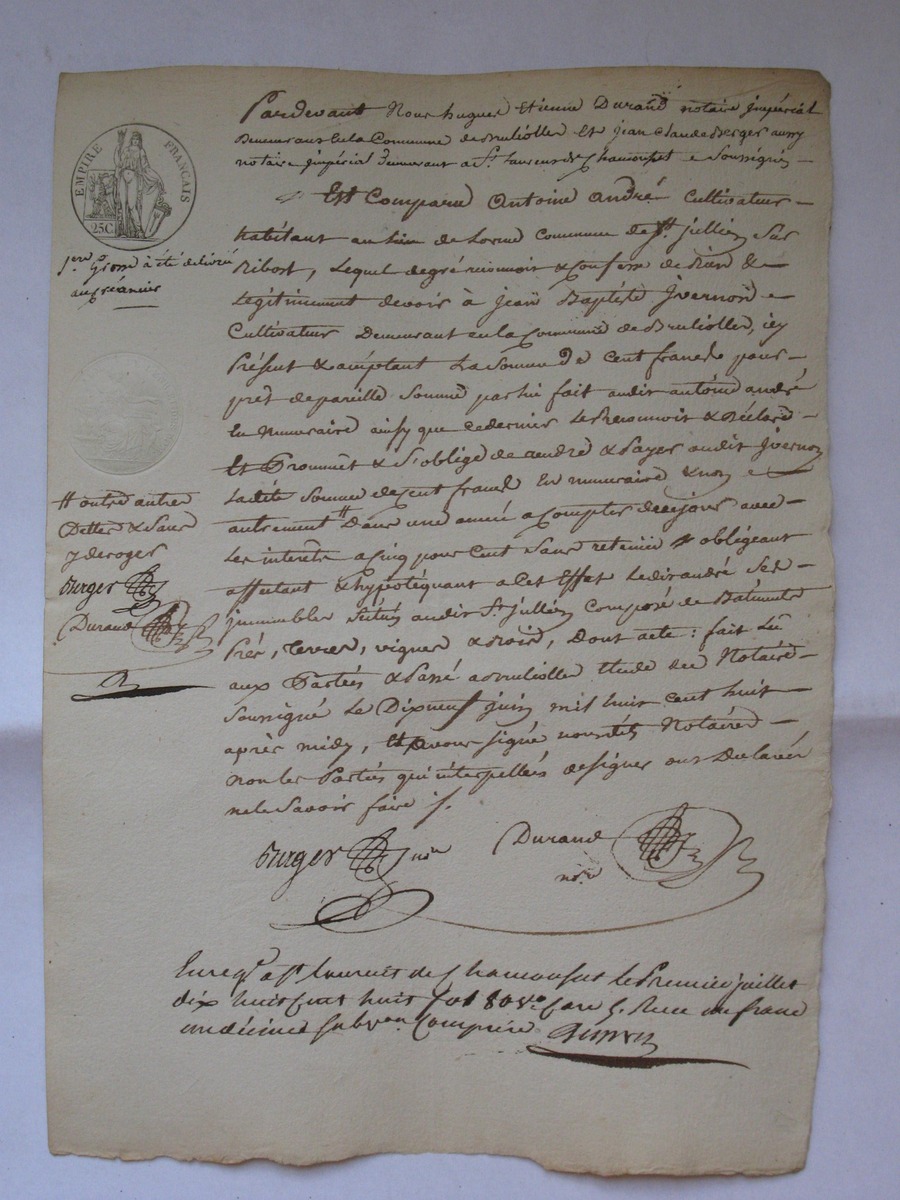 EMPIRE FRANÇAIS
25C.
1ere Grosse à été delivrée
au créancier
Pardevant Nous hugues Etienne Durand notaire Impérial
Demeurant en la Commune de Brullioller Et Jean Claude Berger aussy
notaire Impérial Demeurant a St. Laurent de Chamousset Soussignés
Est Comparu Antoine André Cultivateur
habitant au lieu de Commune de St. jullien Sur
Ribost, Lequel de gré reconnoit & Confesse de Bien &
Legitimement devoir à jean Baptiste
Cultivateur Demeurant en la Commune de Brullioller, icy
Présent & acceptant La Somme De Cent francs pour
prêt de pareille Somme par lui fait audit antoine andré
En Numeraire ainsy que ce dernier Le Reconnoit & Déclare
Et Promet & S'oblige de rendre & Payer audit
Ladite Somme de Cent francs En numeraire & non
autrement # Dans une année a Compter de ce jour avec
Les interêts a Cinq pour Cent Sans retenue obligeant
affectant & hypotéquant a Cet Effet Ledit andré Ses
immeubles Situés audit St. jullien Composé de Batiments
Prés, Terres, vignes & Bois, Dont acte : fait Lu
aux Parties & Passé a Brullioller Etude du Notaire
Soussigné Le Dixneuf juin mil huit Cent huit
après midy, Et avons Signé nousdits Notaires
non les Parties qui interpellées de Signer ont Declarée
ne le Savoir faire ./.
# outre autre
Dettes & Sans
y deroger
Berger
Durand
Berger nre
Durand
nore
Enregé a St Laurent de Chamousset le Premier juillet
dix huit Cent huit fol 80 vo Case 5. Reçu un franc
un décime Subvon Comprise